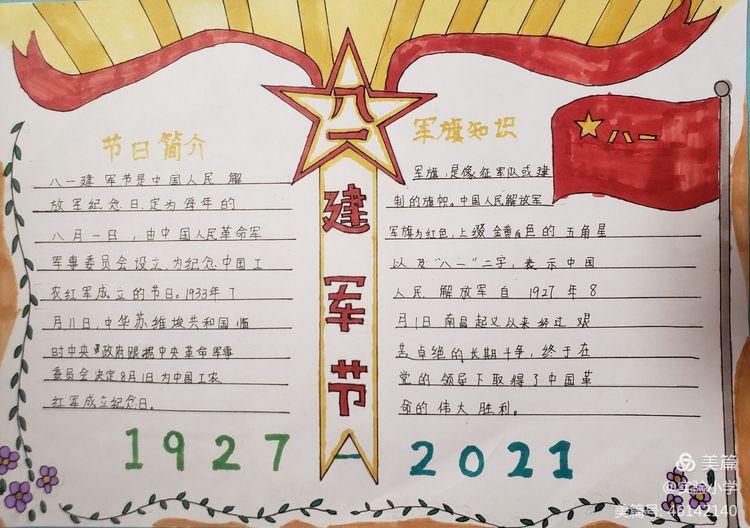 八一
建军节
节日简介
八一建军节是中国人民解
放军纪念日,定为每年的
八月一日,由中国人民革命军
事委员会设立,为纪念中国工
农红军成立的节日。1933年7
月11日,中华苏维埃共和国临
时中央政府跟据中央革命军事
委员会决定8月1日为中国工农
红军成立纪念日。
军旗知识
军旗,是像征军队或建
制的旗帜。中国人民解放军
军旗为红色,上缀金黄色的五角星
以及“八一”二字,表示中国
人民解放军自1927年8
月1日南昌起义以来经过艰
苦卓绝的长期斗争,终于在
党的领导下取得了中国革
命的伟大胜利。
八一
1927-2021
美篇
@实验小学
美篇号:46142140